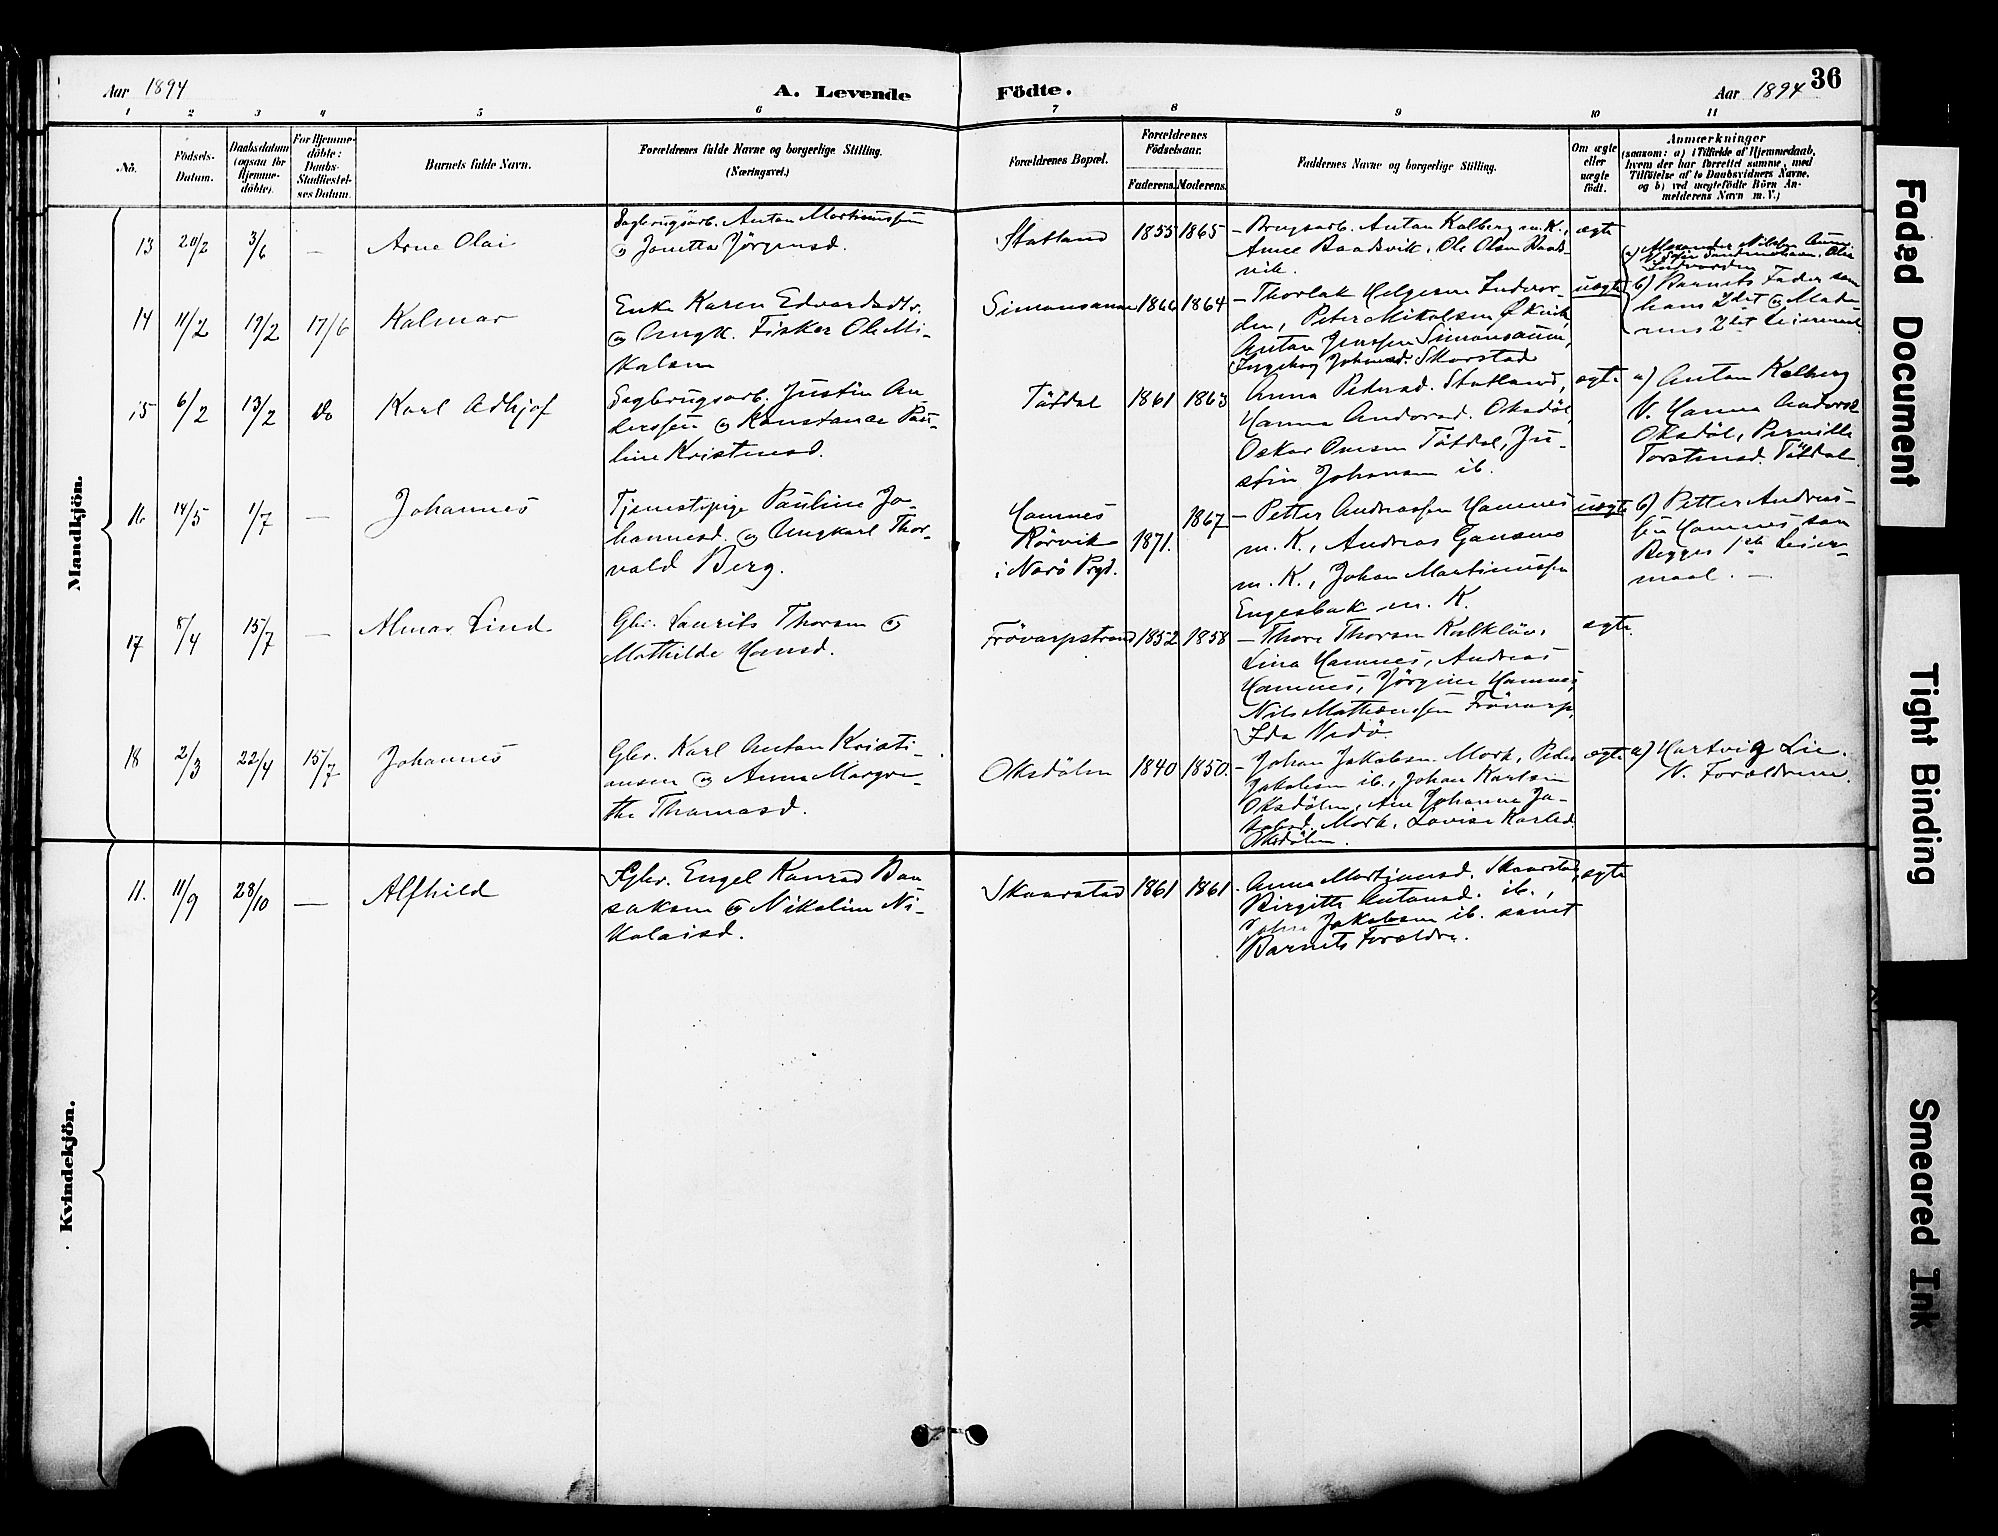 Aar 1894
A. Levende
Födte.
Aar 1894
36
1 2 3 4 5 6 7 8 9 10 11
No.
Födsels-
Datum.
Daabsdatum
(ogsaa för
Hjemme-
döbte).
For Hjemme-
döbte:
Daabs-
Stadfæstel-
ses Datum.
Barnets fulde Navn.
Forældrenes fulde Navne og borgerlige Stilling.
(Næringsvei.)
Forældrenes Bopæl.
Forældrenes
Födselsaar.
Faderens. Moderens.
Faddernes Navne og borgerlige Stilling.
Om ægte
eller
uægte
født.
Anmærkninger
(saasom: a) i Tilfælde af Hjemmedaab,
hvem der har forrettet samme, med
Tilføielse af to Daabsvidners Navne,
og b) ved uægtefødte Börn An-
melderens Navn m. V.)
Mandkjön.
13 20/2 3/6 — Arne Olai
Sagbrugsarb. Anton Martinussen
og Jonetta Jörgensd.
Statland 1855 1865
- Brugsarb. Anton Kalberg m. K.,
Anne Baadsvik, Ole Olsen Baads-
vik.
ægte
14 11/2 19/2 17/6 Kalmar
Enke Karen Edvardsdtr.
og Ungk. Fisker Ole Mi-
kalsen
Simonsaune 1866 1864
- Thorlak Helgesen Indvor-
den, Peter Mikalsen
Anton Jenssen Simonsaune,
Ingeborg Johnsd. Skorstad
uægte
a) Alexander Nilsen Aune.
V.
Indvorden
b) Barnets Fader som
hans 2det og Mode-
rens 2det Leiermaal
15 6/2 13/2 do Karl Adhjof
Sagbrugsarb. Justin An-
derssen og Konstance Pau-
line Kristensd.
Tötdal 1861 1863
Anna Petersd. Statland,
Hanna Andorsd. Oksdöl,
Oskar Ovesen Tötdal, Ju-
stin Johansen ib.
ægte
a) Anton Kalberg
V. Hanna Andorsd.
Oksdöl, Pernille
Torstensd. Tötdal.
16 14/5 1/7 — Johannes
Tjenestepige Pauline Jo-
hannesd. og Ungkarl Thor-
vald Berg.
Hamnes
Rörvik
i Narö Prgd.
1871. 1867
- Petter Andreassen Hamnes
m. K., Andreas Gansmo
m. K., Johan Martinussen
Engesbak m. K.
uægte
b) Petter Andreas-
sen Hamnes som
Begges 1ste Leier-
maal. —
17 8/4 15/7 — Almar Lind
Gbr. Laurits Thorsen og
Mathilde Hansd.
Frövarpstrand 1852 1858
- Thore Thorsen Kalkløv,
Lina Hamnes, Andreas
Hamnes, Jörgine Hamnes,
Nils Mathiassen Frövarp,
Ida Vedö
ægte.
18 2/3 22/4 15/7 Johannes
Gbr. Karl Anton Kristi-
ansen og Anna Margre-
the Thomasd.
Oksdölen 1840 1850.
- Johan Jakobsen Mork, Peder
Jakobsen ib., Johan Karlsen
Oksdölen, Ane Johanna Ja-
kobsd. Mork, Lovise Karlsd.
Oksdölen.
ægte
a) Hartvig Lie.
V. Forældrene.
Kvindekjön.
11. 11/9 28/10 — Alfhild
Gbr. Engel Konrad
og Nikoline Ni-
kolaisd.
Skaarstad 1861 1861
- Anna Martinusd. Skaarstad,
Birgitte Antonsd. ib.,
John Jakobsen ib. samt
Barnets Forældre.
ægte
Faded Document
Tight Binding
Smeared Ink